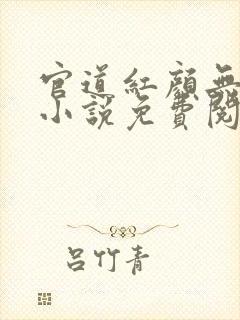 官道红颜无
小说免费阅
吕竹青